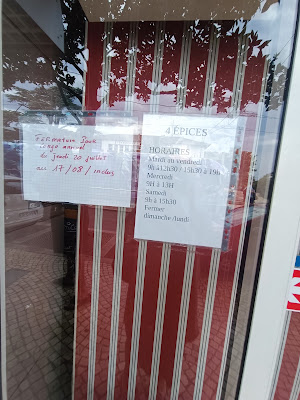 Fermeture pour
congé annuel
du jeudi 20 juillet
au 17/08/inclus
4 ÉPICES
HORAIRES
Mardi au vendredi
9h à12h30 / 15h30 à 19h
Mercredi
9H à 13H
Samedi
9h à 15h30
Fermer
dimanche /lundi